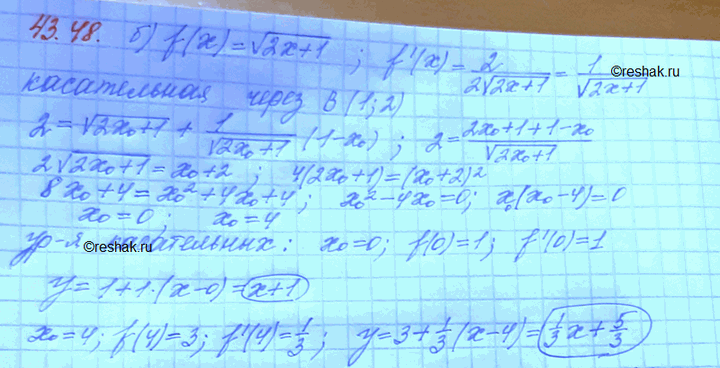 43.48. б) f(x) = √(2x+1) ; f'(x) = 2/(2√(2x+1)) = 1/√(2x+1)
©reshak.ru
касательная через B(1;2)
2 = √(2x₀+1) + 1/√(2x₀+1) (1-x₀) ; 2 = (2x₀+1+1-x₀)/√(2x₀+1)
2√(2x₀+1) = x₀+2 ; 4(2x₀+1) = (x₀+2)²
8x₀+4 = x₀²+4x₀+4 ; x₀²-4x₀=0; x₀(x₀-4)=0
x₀=0 ; x₀=4
ур-я касательных : x₀=0; f(0)=1; f'(0)=1
©reshak.ru
y = 1+1·(x-0) = x+1
x₀=4; f(4)=3; f'(4)=1/3 ; y=3+1/3(x-4)=1/3x+5/3